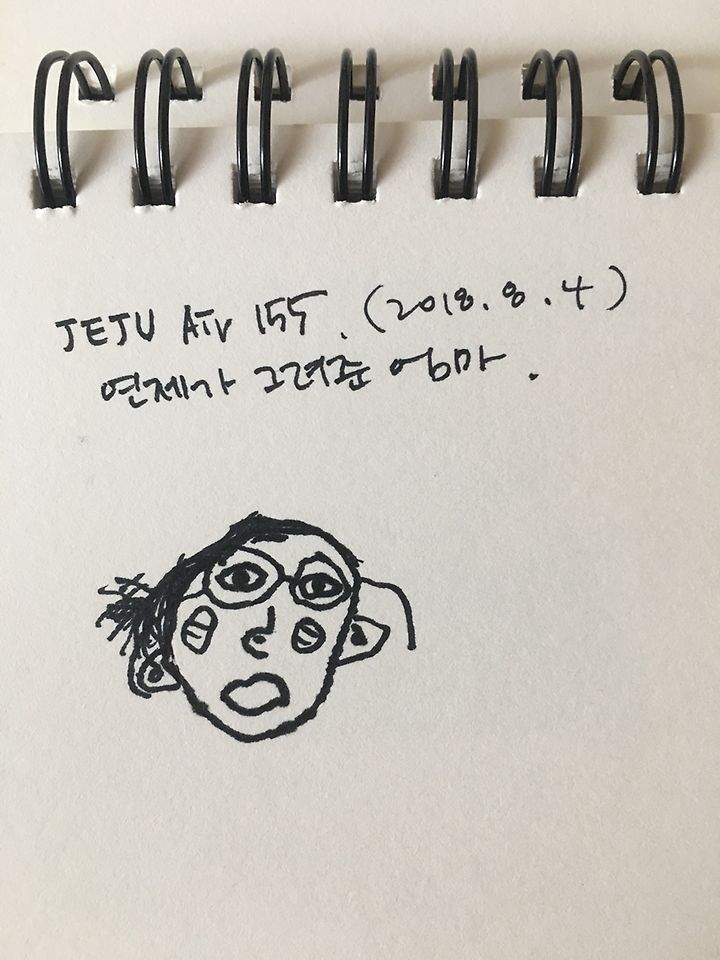 JEJU ATV 155. (2018. 8. 4)
연제가 그려준 엄마.